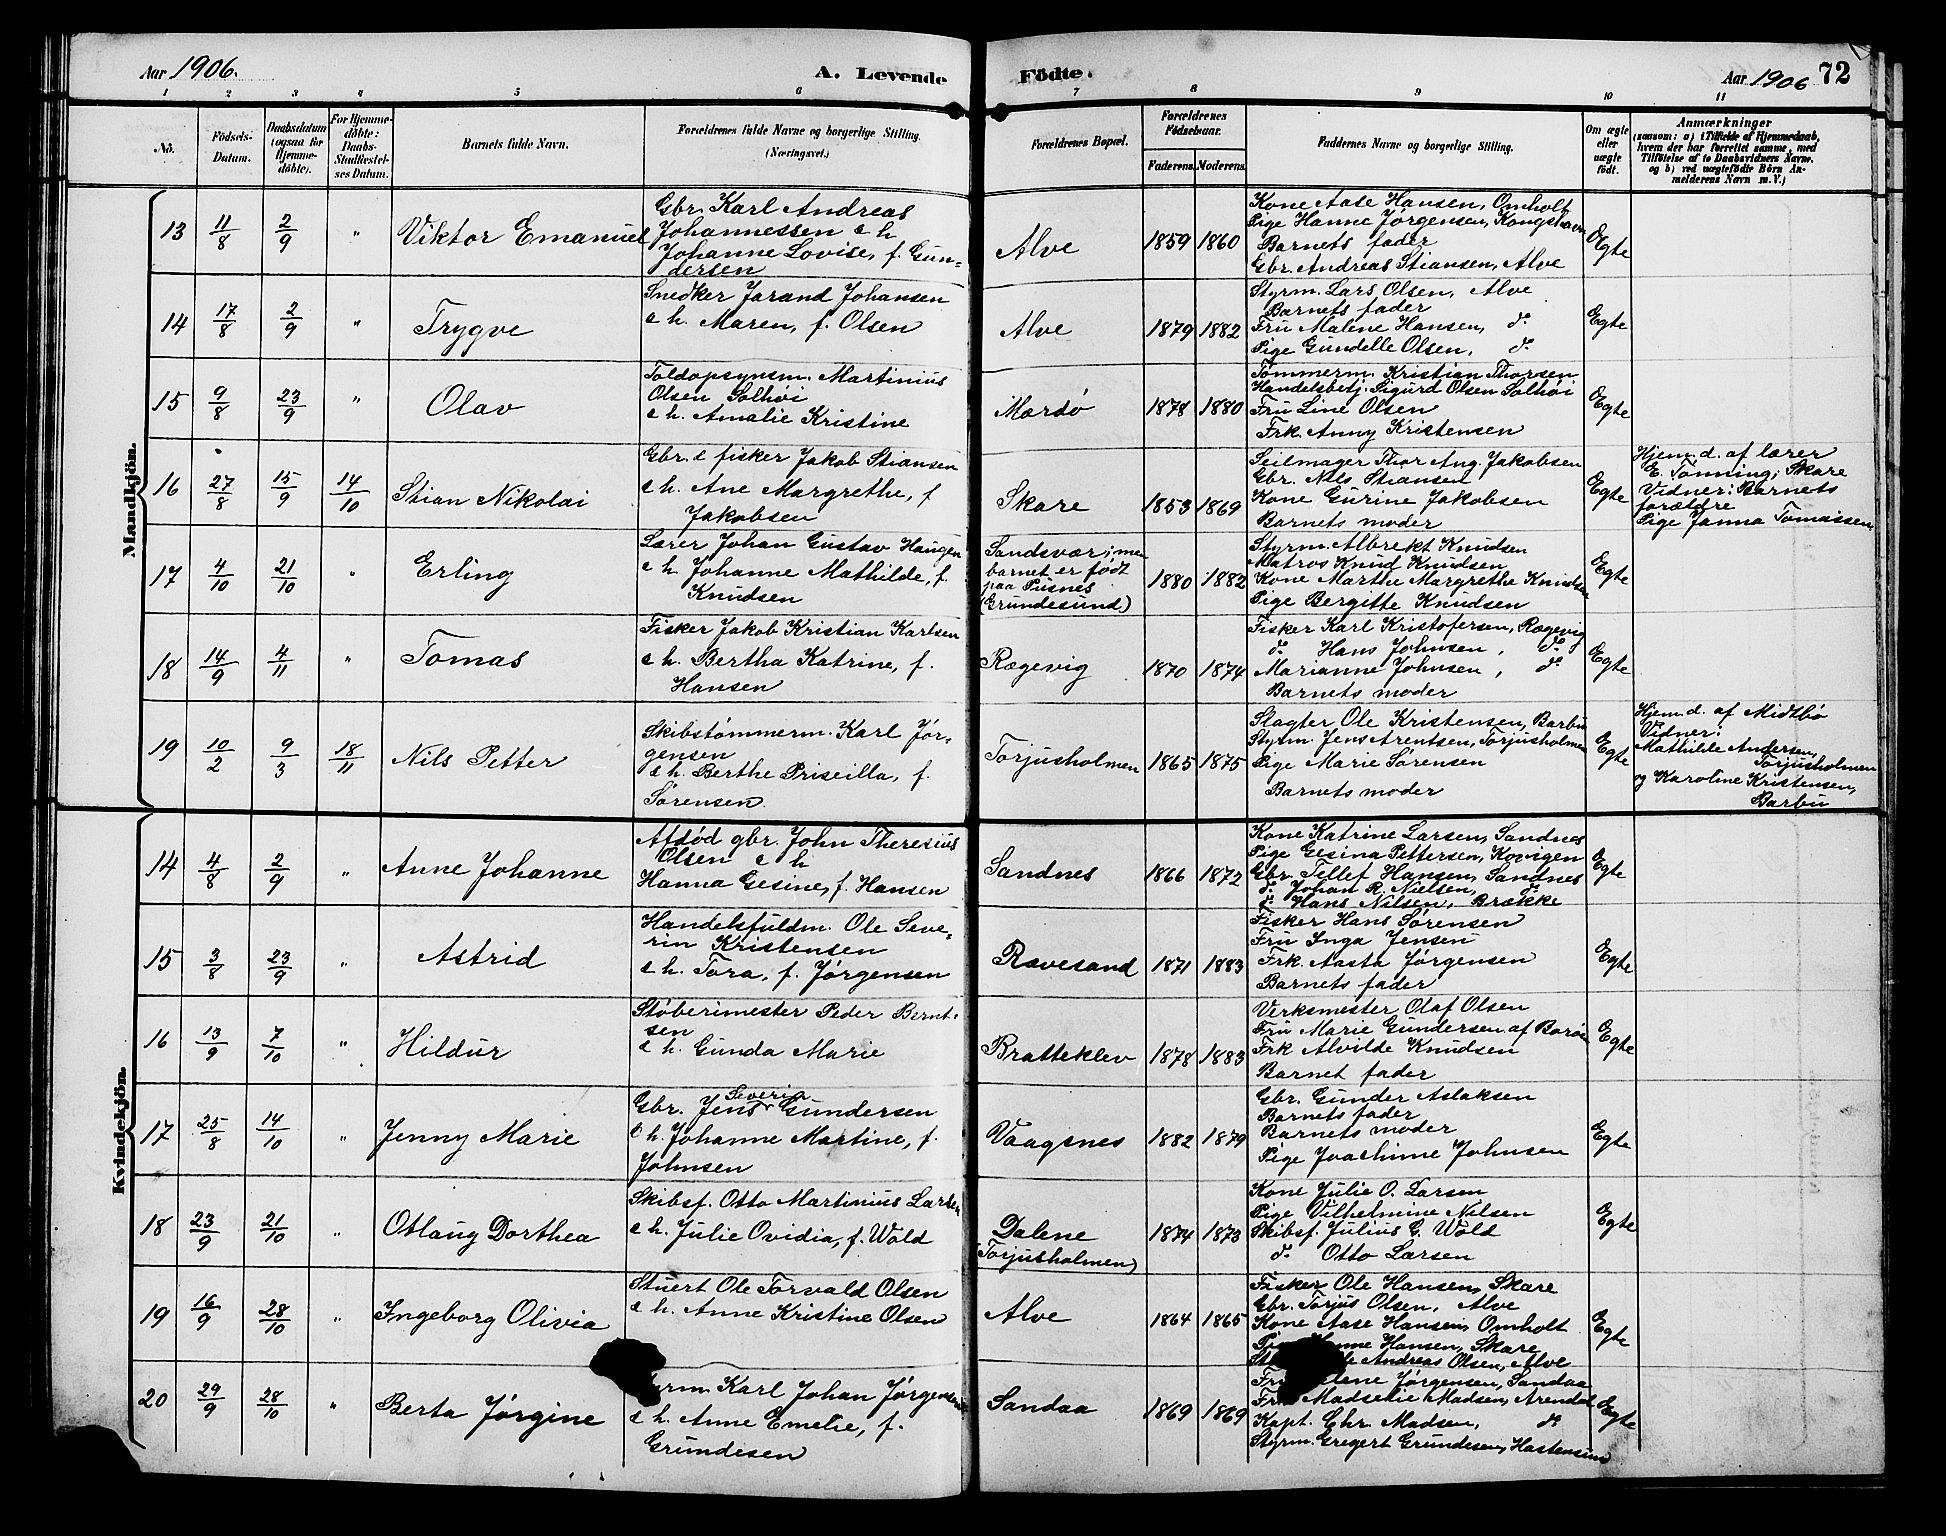 Aar 1906. A. Levende Födte. Aar 1906 72
1 2 3 4 5 6 7 8 9 10 11
No. Födsels-Datum. Daabsdatum (ogsaa for Hjemme-döbte). For Hjemme-döbte: Daabs-Stadfæstel-ses Datum. Barnets fulde Navn. Forældrenes fulde Navne og borgerlige Stilling. (Næringsvei.) Forældrenes Bopæl. Forældrenes Födselsaar. Faderens. Moderens. Faddernes Navne og borgerlige Stilling. Om ægte eller uægte födt. Anmærkninger
(saasom: a) i Tilfælde af Hjemmedaab,
hvem der har forrettet samme, med
Tilföielse af to Daabsvidners Navne.
og b) ved uægtefödte Börn An-
melderens Navn m.V.)
Mandkjön.
13 11/8 2/9 " Viktor Emanuel
Gbr. Karl Andreas
Johannessen & h
Johanne Lovise, f. Gun-
dersen
Alve 1859 1860
Kone Aase Hansen, Omholt
Pige Hanne Jørgensen, Kongshavn
Barnets fader
Gbr. Andreas Stiansen, Alve
Egte
14 17/8 2/9 " Trygve
Snedker Jarand Johansen
& h. Maren, f. Olsen
Alve 1879 1882
Styrm. Lars Olsen, Alve
Barnets fader
Fru Malene Hansen, do
Pige Gundelle Olsen, do
Egte
15 9/8 23/9 " Olav
Toldopsynsm. Martinius
Olsen Solhøi
& h. Amalie Kristine
Mærdø 1878 1880
Tømmerm. Kristian Thorsen
Handelsbetj. Sigurd Olsen Solhøi
Fru Line Olsen
Frk. Anny Kristensen
Egte
16 27/8 15/9 14/10 Stian Nikolai
Gbr. & fisker Jakob Stiansen
& h. Ane Margrethe, f
Jakobsen
Skare 1853 1869
Seilmager Thor Aug. Jakobsen
Gbr. Nils Stiansen
Kone Gurine Jakobsen
Barnets moder
Egte
Hjem.d. af lærer
E. Tønning, Skare
Vidner: Barnets
forældre
Pige Janna Tomassen
17 4/10 21/10 " Erling
Lærer Johan Gustav Haugen
& h. Johanne Mathilde, f.
Knudsen
Sandsvær; men
barnet er født
paa Pusnes
(Grundesund)
1880 1882
Styrm. Albrekt Knudsen
Matros Knud Knudsen
Kone Marthe Margrethe Knudsen
Pige Bergitte Knudsen
Egte
18 14/9 4/11 " Tomas
Fisker Jakob Kristian Karlsen
& h. Bertha Katrine, f.
Hansen
Rægevig 1870 1874
Fisker Karl Kristofersen, Rægevig
do Hans Johnsen, do
Marianne Johnsen, do
Barnets moder
Egte
19 10/2 9/3 18/11 Nils Petter
Skibstømmerm. Karl Jør-
gensen
& h. Berthe Priscilla, f.
Sørensen.
Torjusholmen 1865 1875
Slagter Ole Kristensen, Barbu
Styrm. Jens Arentsen, Torjusholmen
Pige Marie Sørensen
Barnets moder
Egte
Hjem.d. af Midtbø
Vidner:
Mathilde Andersen,
Torjusholmen
og Karoline Kristensen,
Barbu
Kvindekjön.
14 4/8 2/9 " Anne Johanne
Afdød gbr. John Theresius
Olsen & h
Hanna Gesine, f. Hansen
Sandnes 1866 1872
Kone Katrine Larsen, Sandnes
Pige Gesina Pettersen, Kovigen
Gbr. Tellef Hansen, Sandnes
do Johan R. Nielsen, do
do Hans Nilsen, Brække
Egte
15 3/8 23/9 " Astrid
Handelsfuldm. Ole Seve-
rin Kristensen
& h. Tora, f. Jørgensen
Rævesand 1871 1883
Fisker Hans Sørensen
Fru Inga Jensen
Frk. Aasta Jørgensen
Barnets fader
Egte
16 13/9 7/10 " Hildur
Støberimester Peder Bernt-
sen
& h. Gunda Marie
Bratteklev 1878 1883
Verksmester Olaf Olsen
Fru Marie Gundersen af Barøen
Frk Alvilde Knudsen
Barnet fader
Egte
17 25/8 14/10 " Jenny Marie
Gbr. Jens Severin Gundersen
& h. Johanne Martine, f.
Johnsen
Vaagsnes 1882 1879
Gbr. Gunder Aslaksen
Barnets fader
Barnets moder
Pige Joachinne Johnsen
Egte
18 23/9 21/10 " Otlaug Dorthea
Skibsf. Otto Martinius Larsen
& h. Julie Ovidia, f. Wold
Dalene
(Torjusholmen)
1874 1873
Kone Julie O. Larsen
Pige Vilhelmine Nilsen
Skibsf. Julius G. Wold
do Otto Larsen
Egte
19 16/9 28/10 " Ingeborg Olivia
Stuert Ole Torvald Olsen
& h. Anne Kristine Olsen
Alve 1864 1865
Fisker Ole Hansen, Skare
Gbr. Torjus Olsen, Alve
Kone Aase Hansen, Omholt
Hansen, Skare
Andreas Olsen, Alve
Egte
20 29/9 28/10 " Berta Jørgine
Karl Johan Jørgensen
& h. Anne Emelie, f.
Grundesen
Sandaa 1869 1869
Jørgensen, Sandaa
Madselie Madsen, Arendal
Kapt. Chr. Madsen, do
Styrm. Gregert Grundesen, Hastensund
Egte